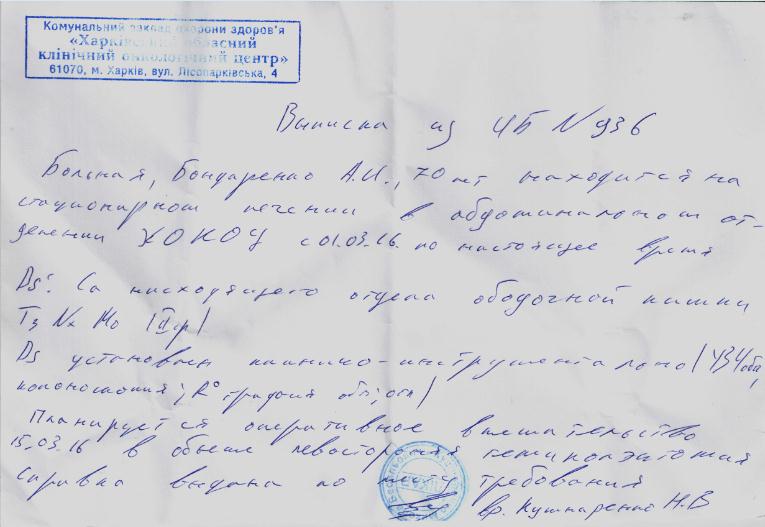 Комунальний заклад охорони здоров'я
«Харківський обласний
клінічний онкологічний центр»
61070, м. Харків, вул. Лісопарківська, 4
Выписка из ИБ N 936
Больная, Бондаренко А.И., 70 лет находится на
стационарном лечении в абдоминальном от-
делении ХОКОЦ с 01.03.16. по настоящее время
Ds: Ca нисходящего отдела ободочной кишки
T3 Nx M0 II гр
Ds установлен клинико-инструментально (УЗИ
колоноскопия, R°графия
Планируется оперативное вмешательство
15.03.16 в объеме левосторонняя гемиколэктомия
Справка выдана по месту требования
вр. Кушнаренко Н.В